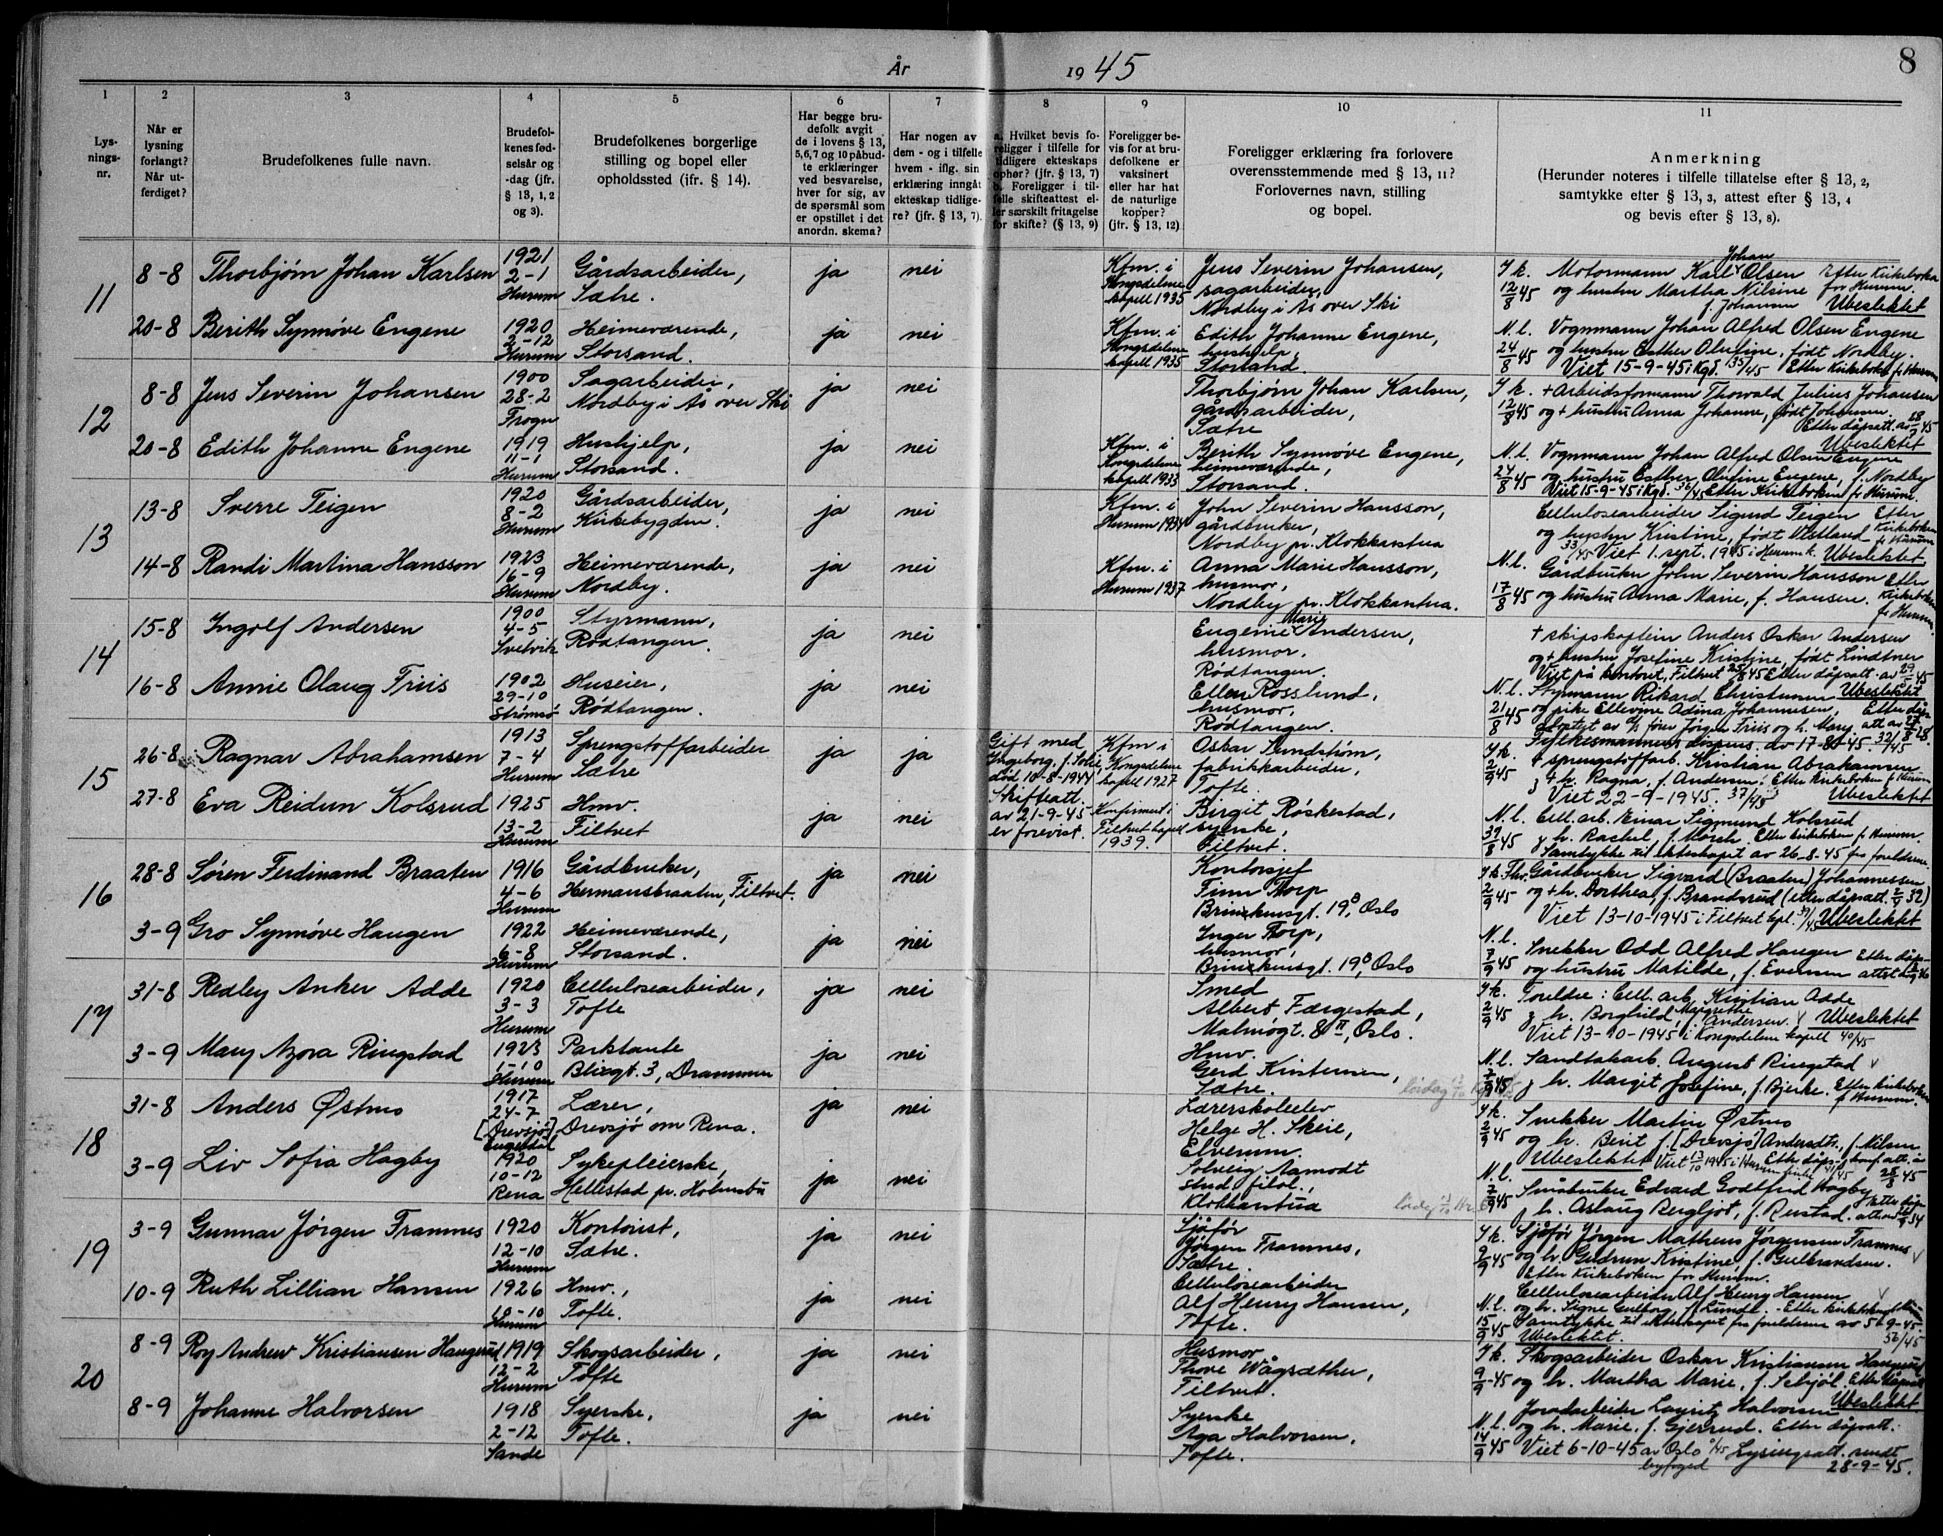 År 1945
8
1
2
3
4
5
6
7
8
9
10
11
Lys-
nings-
nr.
Når er
lysning
forlangt?
Når ut-
ferdiget?
Brudefolkenes fulle navn.
Brudefol-
kenes fød-
selsår og
-dag (jfr.
§ 13, 1, 2
og 3).
Brudefolkenes borgerlige
stilling og bopel eller
opholdssted (jfr. § 14).
Har begge bru-
defolk avgit
de i lovens § 13,
5,6,7 og 10 påbud-
te erklæringer
ved besvarelse,
hver for sig, av
de spørsmål som
er opstillet i det
anordn. skema?
Har nogen av
dem - og i tilfelle
hvem - iflg. sin
erklæring inngåt
ekteskap tidlige-
re? (jfr. § 13, 7).
a. Hvilket bevis fo-
religger i tilfelle for
tidligere ekteskaps
ophør? (jfr. § 13, 7)
b. Foreligger i til-
felle skifteattest el-
ler særskilt fritagelse
for skifte? (§ 13, 9)
Foreligger be-
vis for at bru-
defolkene er
vaksinert
eller har hat
de naturlige
kopper?
(jfr. § 13, 12)
Foreligger erklæring fra forlovere
overensstemmende med § 13, 11?
Forlovernes navn, stilling
og bopel.
Anmerkning
(Herunder noteres i tilfelle tillatelse efter § 13, 2,
samtykke efter § 13, 3, attest efter § 13, 4
og bevis efter § 13, 8).
11
8-8 Thorbjørn Johan Karlsen
1921
2-1
Hurum
Gårdsarbeider,
Sætre.
ja
nei
Kfm. i
Kongsdelene
kapell 1935
Jens Severin Johansen,
sagarbeider,
Nordby i Ås over Ski
Y k. Motormann Karl Johan Olsen Efter Kirkeboken
12/8 45 og hustru Martha Nilsine for Hurum.
f. Johansen Ubeslektet
20-8 Berith Synnøve Engene
1920
2-12
Hurum
Heimeværende,
Storsand.
ja
nei
Kfm. i
Kongsdelene
kapell 1935
Edith Johanne Engene,
hushjelp,
Storsand.
N. l. Vognmann Johan Alfred Olsen Engene
24/8 45 og hustru Esther Olufine, født Nordby.
Viet 15-9-45 i Kgd. 35/45 Efter Kirkeboken f. Hurum
12
8-8 Jens Severin Johansen
1900
28-2
Frogn
Sagarbeider,
Nordby i Ås over Ski
ja
nei
Thorbjørn Johan Karlsen,
gårdsarbeider,
Sætre
Y k. + Arbeidsformann Thorvald Julius Johansen
12/8 45 og + hustru Anna Johanne, født Johansen.
Ubeslektet
20-8 Edith Johanne Engene
1919
11-1
Hurum
Hushjelp,
Storsand.
ja
nei
Kfm. i
Kongsdelene
kapell 1933
Berith Synnøve Engene,
heimeværende,
Storsand.
N. l. Vognmann Johan Alfred Olsen Engene
24/8 45 og hustru Esther Olufine Engene, f. Nordby
Viet 15-9-45 i Kgd. 36/45 Efter Kirkeboken f. Hurum.
13
13-8 Sverre Teigen
1920
8-2
Hurum
Gårdsarbeider,
Kirkebygden.
ja
nei
Kfm. i
Hurum 1934
John Severin Hansson,
gårdbruker,
Nordby pr. Klokkarstua
Cellulosearbeider Sigurd Teigen Efter
og hustru Kristine, født Kirkeboken
33/45 Viet 1. sept. 1945 i Hurum k. Ubeslektet
14-8 Randi Martina Hansson
1923
16-9
Hurum
Heimeværende,
Nordby.
ja
nei
Kfm. i
Hurum 1937
Anna Marie Hansson,
husmor,
Nordby pr. Klokkarstua.
N. l. Gårdbruker John Severin Hansson Efter
17/8 45 og hustru Anna Marie, f. Hansen. Kirkeboken
f. Hurum.
14
15-8 Ingolf Andersen
1900
4-5
Svelvik
Styrmann,
Rødtangen.
ja
nei
Eugenie Marie Andersen,
husmor.
Rødtangen
+ skipskaptein Anders Oskar Andersen
og + hustru Josefine Kristine, født Lindtner
Viet på kontoret, Filtvet 25/8 45 Efter dåpsatt. av
16-8 Annie Olaug Friis
1902
29-10
Strømsø
Huseier,
Rødtangen.
ja
nei
Ellen Rosslund,
husmor,
Rødtangen.
N. l. Styrmann Rikard Christensen Ubeslektet
21/8 45 og pike Ellevine Adina Johannesen,
15
26-8 Ragnar Abrahamsen
1913
7-4
Hurum
Sprengstoffarbeider
Sætre
ja
ja
Gift med
Ingeborg, f. Solli,
død 10-8-1944,
Skifteatt.
av 21-9-45
er forevist.
Kfm i
Kongsdelene
kapell 1927
Oskar Lundstrøm,
fabrikkarbeider,
Tofte.
Fylkesmannens dispens. av 17-8-45.
Y k. + sprengstoffarb. Kristian Abrahamsen
2/9 45 + h. Ragna, f. Andersen. Efter Kirkeboken f. Hurum
Viet 22-9-1945. 37/45 Ubeslektet
27-8 Eva Reidun Kolsrud
1925
13-2
Hurum
Hmv.
Filtvet
ja
nei
Konfirmert i
Filtvet kapell
1939.
Birgit Røskestad,
syerske,
Filtvet.
N. l. Cell. arb. Einar Sigmund Kolsrud
h. Rachel, f. Mørch. Efter Kirkeboken f. Hurum.
Samtykke til ekteskapet av 26-8-45 fra foreldrene
16
28-8 Søren Ferdinand Braaten
1916
4-6
Hurum
Gårdbruker,
Hermansbraaten, Filtvet.
ja
nei
Kontorsjef
Finn Thorp
19, Oslo
Gårdbruker Sigvard (Braaten) Johannessen
2/9 45 og + h. Dorthea, f. Brandsrud (efter dåpsatt.
Viet 13-10-1945 i Filtvet kpl. 39/45 Ubeslektet
3-9 Gro Synnøve Haugen
1922
6-8
Hurum
Heimeværende,
Storsand.
ja
nei
Inger Thorp,
husmor,
19, Oslo
N. l. Snekker Odd Alfred Haugen Efter dåps-
9/9 45 og hustru Matilde, f. Evensen attest
17
31-8 Redley Anker Adde
1920
3-3
Hurum
Cellulosearbeider,
Tofte
ja
nei
Smed
Albert Færgestad,
Malmøgt. 8 II, Oslo.
Y k. Foreldre: Cell. arb. Kristian Adde
2/9 45 h. Borghild Margrethe Andersen. Ubeslektet
Viet 13-10-1945 i Kongsdelene kapell 40/45
3-9 Mary Azora Ringstad
1923
1-10
Hurum
Parktante
Blixgt. 3, Drammen
ja
nei
Hmv.
Gerd Kristensen,
Sætre.
N. l. Sandtakarb. August Ringstad
h. Margit Josefine, f. Bjerke. Efter Kirkeboken
f. Hurum.
18
31-8 Anders Østmo
1917
24-7
[Drevsjø]
Engerdal
Lærer,
Drevsjø om Rena.
ja
nei
Lærerskoleelev
Helge H. Skeie,
Elverum.
Y k. Snekker Martin Østmo
2/9 45 og h. Berit f. [Drevsjø] Andersdtr., f. Nilsen
Ubeslektet Viet 13/10 1945 i Hurum kirke 41/45
3-9 Liv Sofia Hagby
1920
10-12
Rena
Sykepleierske,
Hellestad pr. Holmsbu
ja
nei
Solveig Aamodt
stud. filol.,
Klokkarstua
N. l. Småbruker Edvard Godtfred Hagby
h. Aslaug Bergljot, f. Rustad.
19
3-9 Gunnar Jørgen Framnes
1920
12-10
Hurum
Kontorist,
Sætre.
ja
nei
Sjåfør
Jørgen Framnes,
Sætre.
Y k. Sjåfør Jørgen Matheus Jørgensen Framnes
9/9 45 og h. Gudrun Kristine, f. Gulbrandsen.
Efter Kirkeboken for Hurum.
10-9 Ruth Lillian Hansen
1926
10-10
Hurum
Hmv.,
Tofte.
ja
nei
Cellulosearbeider
Alf Henry Hansen,
Tofte.
Cellulosearbeider Alf Henry Hansen
N. l. og h. Signe Gulborg, f. Lunde. - Efter Kirkeboken
15/9 45 Samtykke til ekteskapet fra foreldrene av 5-9-45
Ubeslektet. 56/45
20
8-9 Roy Andrew Kristiansen Haugerud
1919
12-2
Hurum
Skogsarbeider,
Tofte
ja
nei
Husmor
Thove Wågsæther,
Filtvet.
Y k. Skogsarbeider Oskar Kristiansen Haugerud
9/9-45 og h. Martha Marie, f. Selsjøl. Efter dåpsatt.
Ubeslektet.
8-9 Johanne Halvorsen
1918
2-12
Sande
Syerske,
Tofte.
ja
nei
Syerske
Aga Halvorsen,
Tofte.
Jordarbeider Lauritz Halvorsen
N. l. og h. Marie, f. Gjerrud. Efter dåpsatt.
14/9 45 Viet 6-10-45 av Oslo Lysingsatt. sendt
byfoged 28-9-45.